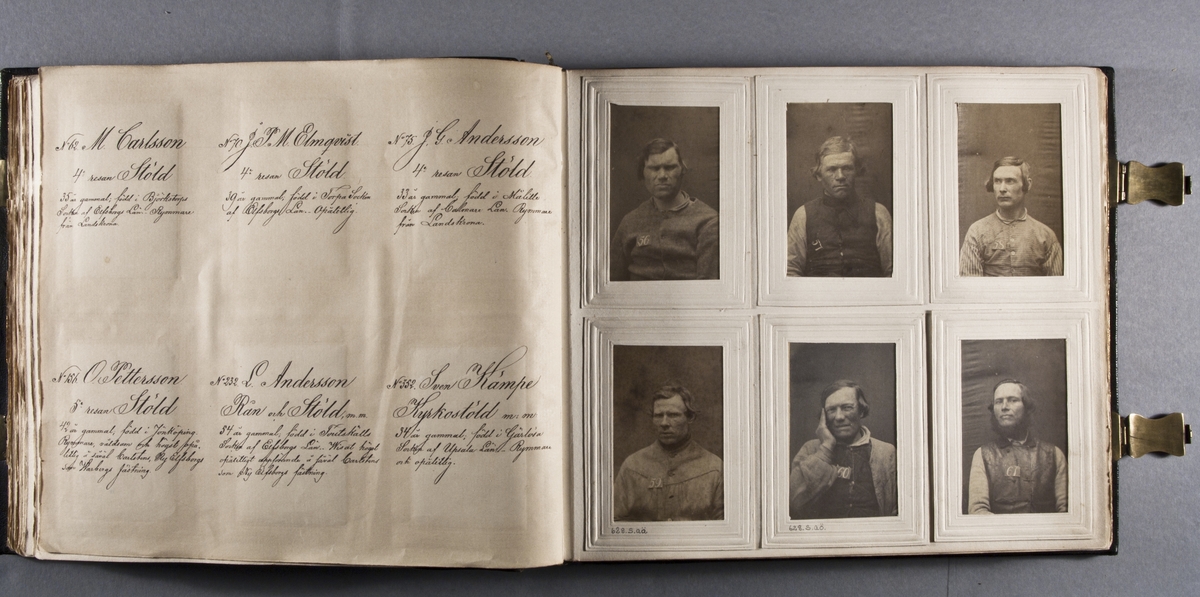 No 62 M Carlsson
4e resan Stöld
35 år gammal, född i Björketorps
Socken af Elfsborgs Län. Rymmare
från Landskrona.
No 70 J. P. M. Elmqvist.
4e resan Stöld
39 år gammal, född i Torpa Socken
af Elfsborgs Län. Opålitlig.
No 75 J. G. Andersson
4e resan Stöld
32 år gammal, född i Målilla
Socken af Calmare Län. Rymmare
från Landskrona.
O. Pettersson
5e resan Stöld
42 år gammal, född i Jönköping.
Rymmare, våldsam och högst opå-
litlig å såväl Carlstens, Ny Elfsborgs
som Warbergs fästning.
No 232 L. Andersson
Rån och Stöld, m. m.
34 år gammal, född i
Socken af Elfsborgs Län. Högst
opålitligt å såväl Carlstens
som Ny Elfsborgs fästning.
No 352 Sven Kämpe
Kyrkostöld m: m
34 år gammal, född i Gårlösa
Socken af Upsala Län. Rymmare
och opålitlig.
56
57
628.S.aä.
628.S.aä.